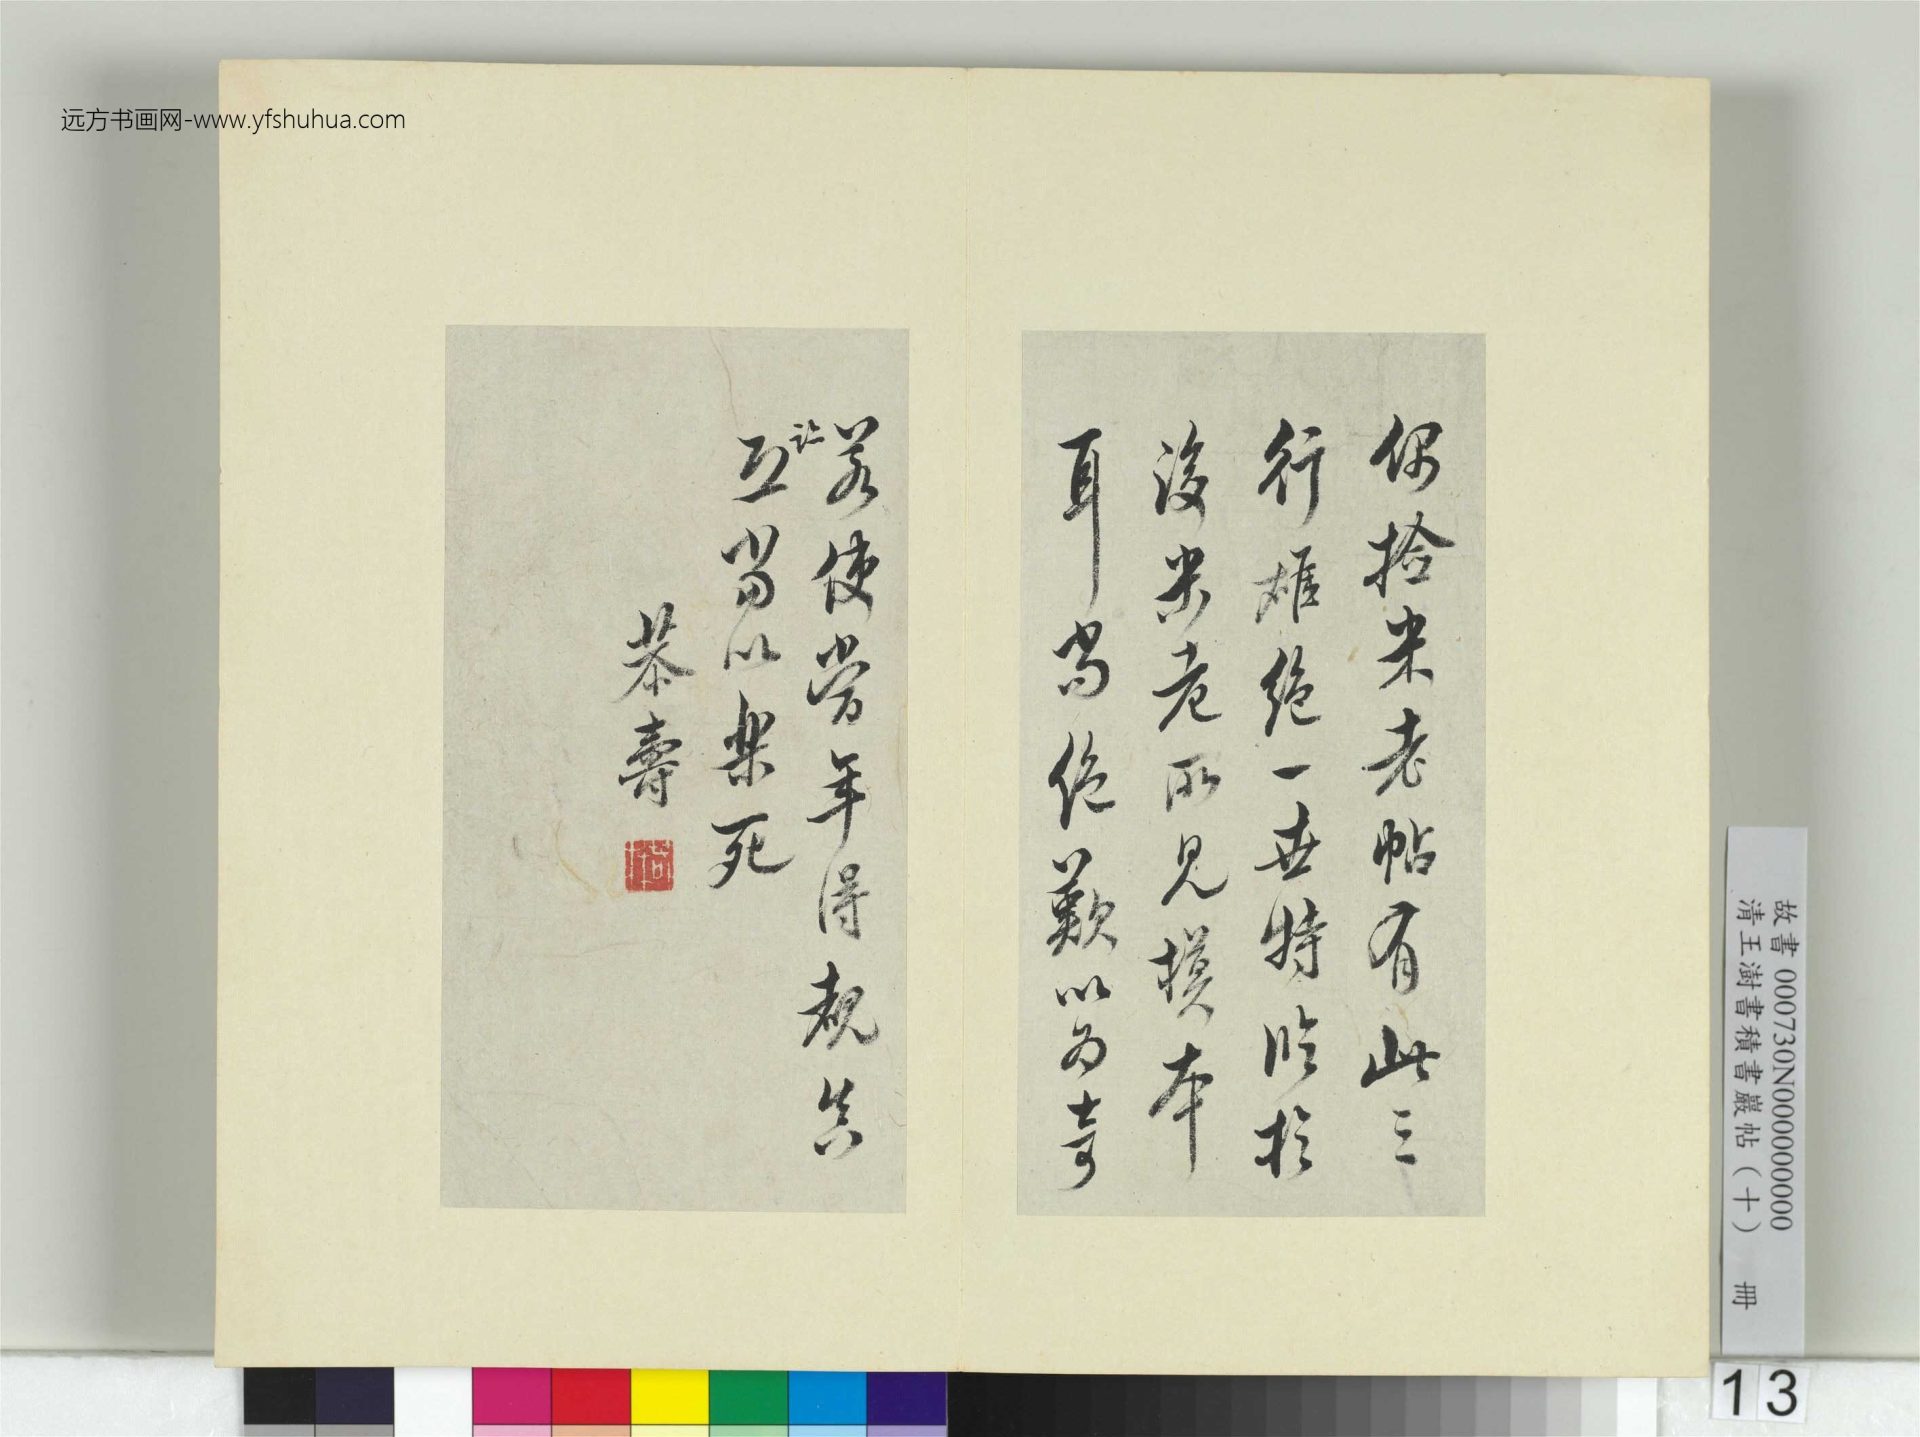 远方书画网-www.yfshuhua.com
偶拾米老帖有此三
行雄絶一世特臨於
後米老所見摸本
耳尚絶歎以為奇
若使當年得覩真
跡
正當以樂死
恭壽
故書 000730N000000000
清王澍書積書巖帖（十） 冊
13